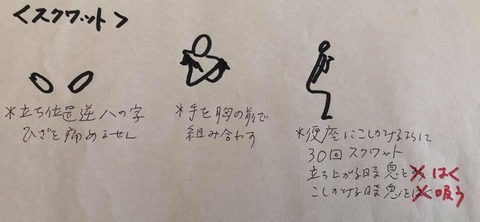 <スクワット>
*立ち位置逆ハの字
ひざを痛めません
*手を胸の前で
組み合わす
*便座にこしかけるように
30回スクワット
立ち上がる時息を はく
こしかける時息を 吸う